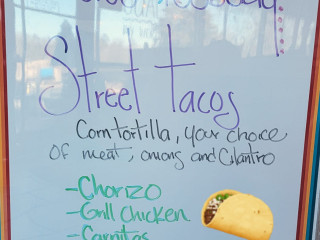 Street tacos
Corn tortilla, your choice
of meat, onions and Cilantro
-Chorizo
-Grill Chicken
-Carnitas